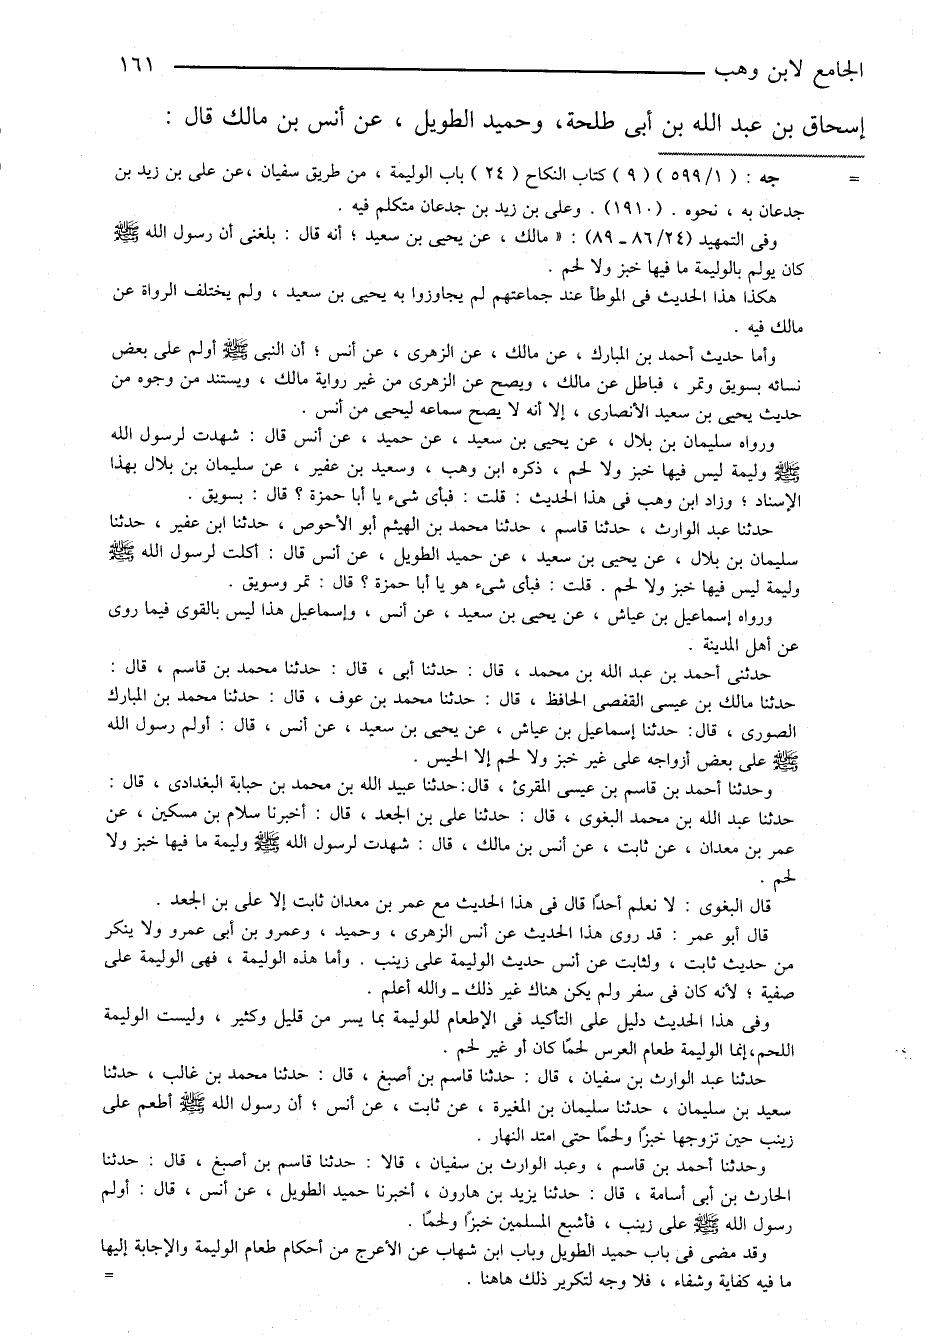 الجامع لابن وهب ــــــــــــــــــــــــــــــــ ١٦١
إسحاق بن عبد الله بن أبى طلحة، وحميد الطويل ، عن أنس بن مالك قال :
= جه : ( ٥٩٩/١ ) ( ٩ ) كتاب النكاح ( ٢٤ ) باب الوليمة ، من طريق سفيان ،عن على بن زيد بن
جدعان به ، نحوه . (١٩١٠) . وعلى بن زيد بن جدعان متكلم فيه .
وفى التمهيد (٨٦/٢٤ ـ ٨٩) : « مالك ، عن يحيى بن سعيد ؛ أنه قال : بلغنى أن رسول الله ﷺ
كان يولم بالوليمة ما فيها خبز ولا لحم .
هكذا هذا الحديث فى الموطأ عند جماعتهم لم يجاوزوا به يحيى بن سعيد ، ولم يختلف الرواة عن
مالك فيه .
وأما حديث أحمد بن المبارك ، عن مالك ، عن الزهرى ، عن أنس ؛ أن النبى ﷺ أولم على بعض
نسائه بسويق وتمر ، فباطل عن مالك ، ويصح عن الزهرى من غير رواية مالك ، ويستند من وجوه من
حديث يحيى بن سعيد الأنصارى ، إلا أنه لا يصح سماعه ليحيى من أنس .
ورواه سليمان بن بلال ، عن يحيى بن سعيد ، عن حميد ، عن أنس قال : شهدت لرسول الله
ﷺ وليمة ليس فيها خبز ولا لحم ، ذكره ابن وهب ، وسعيد بن عفير ، عن سليمان بن بلال بهذا
الإسناد ؛ وزاد ابن وهب فى هذا الحديث : قلت : فبأى شىء يا أبا حمزة ؟ قال : بسويق .
حدثنا عبد الوارث ، حدثنا قاسم ، حدثنا محمد بن الهيثم أبو الأحوص ، حدثنا ابن عفير ، حدثنا
سليمان بن بلال ، عن يحيى بن سعيد ، عن حميد الطويل ، عن أنس قال : أكلت لرسول الله ﷺ
وليمة ليس فيها خبز ولا لحم . قلت : فبأى شىء هو يا أبا حمزة ؟ قال : تمر وسويق .
ورواه إسماعيل بن عياش ، عن يحيى بن سعيد ، عن أنس ، وإسماعيل هذا ليس بالقوى فيما روى
عن أهل المدينة .
حدثنى أحمد بن عبد الله بن محمد ، قال : حدثنا أبى ، قال : حدثنا محمد بن قاسم ، قال :
حدثنا مالك بن عيسى القفصى الحافظ ، قال : حدثنا محمد بن عوف ، قال : حدثنا محمد بن المبارك
الصورى ، قال: حدثنا إسماعيل بن عياش ، عن يحيى بن سعيد ، عن أنس ، قال : أولم رسول الله
ﷺ على بعض أزواجه على غير خبز ولا لحم إلا الحيس .
وحدثنا أحمد بن قاسم بن عيسى المقرئ ، قال:حدثنا عبيد الله بن محمد بن حبابة البغدادى ، قال :
حدثنا عبد الله بن محمد البغوى ، قال : حدثنا على بن الجعد ، قال : أخبرنا سلام بن مسكين ، عن
عمر بن معدان ، عن ثابت ، عن أنس بن مالك ، قال : شهدت لرسول الله ﷺ وليمة ما فيها خبز ولا
لحم .
قال البغوى : لا نعلم أحدًا قال فى هذا الحديث مع عمر بن معدان ثابت إلا على بن الجعد .
قال أبو عمر : قد روى هذا الحديث عن أنس الزهرى ، وحميد ، وعمرو بن أبى عمرو ولا ينكر
من حديث ثابت ، ولثابت عن أنس حديث الوليمة على زينب . وأما هذه الوليمة ، فهى الوليمة على
صفية ؛ لأنه كان فى سفر ولم يكن هناك غير ذلك ـ والله أعلم .
وفى هذا الحديث دليل على التأكيد فى الإطعام للوليمة بما يسر من قليل وكثير ، وليست الوليمة
اللحم،إنما الوليمة طعام العرس لحمًا كان أو غير لحم .
حدثنا عبد الوارث بن سفيان ، قال : حدثنا قاسم بن أصبغ ، قال : حدثنا محمد بن غالب ، حدثنا
سعيد بن سليمان ، حدثنا سليمان بن المغيرة ، عن ثابت ، عن أنس ؛ أن رسول الله ﷺ أطعم على
زينب حين تزوجها خبزًا ولحمًا حتى امتد النهار .
وحدثنا أحمد بن قاسم ، وعبد الوارث بن سفيان ، قالا : حدثنا قاسم بن أصبغ ، قال : حدثنا
الحارث بن أبى أسامة ، قال : حدثنا يزيد بن هارون ، أخبرنا حميد الطويل ، عن أنس ، قال : أولم
رسول الله ﷺ على زينب ، فأشبع المسلمين خبزًا ولحمًا .
وقد مضى فى باب حميد الطويل وباب ابن شهاب عن الأعرج من أحكام طعام الوليمة والإجابة إليها
ما فيه كفاية وشفاء ، فلا وجه لتكرير ذلك هاهنا . =